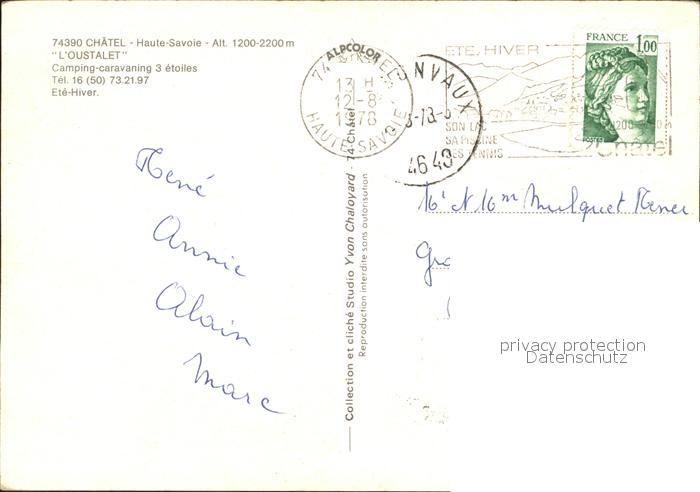 74390 CHÂTEL - Haute-Savoie - Alt. 1200-2200 m
"L'OUSTALET"
Camping-caravaning 3 étoiles
Tél. 16 (50) 73.21.97
Eté-Hiver.
ALPCOLOR
13 H
12-8
1978
HAUTE-SAVOIE
NVAUX
4640
ETE, HIVER
SON LAC
SA PISCINE
SES TENNIS
Châtel
FRANCE 1,00
POSTES
René
Annie
Alain
Marc
Collection et cliché Studio Yvon Chaloyard - 74-Châtel
Reproduction interdite sans autorisation
Mulquet
privacy protection
Datenschutz